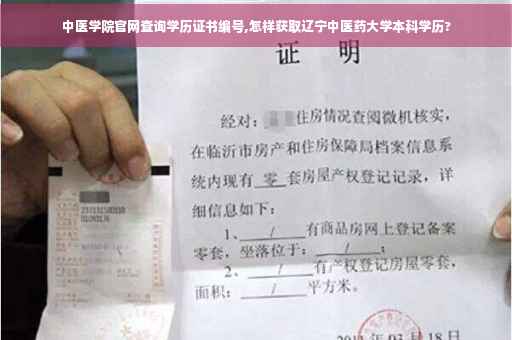 中医学院官网查询学历证书编号,怎样获取辽宁中医药大学本科学历?
证 明
经对: 住房情况查阅微机核实,
在临沂市房产和住房保障局档案信息系
统内现有 零 套房屋产权登记记录, 详
细信息如下:
1、 / 有商品房网上登记备案
零套, 坐落位于: / ;
2、 / 有产权登记房屋零套,
面积: / 平方米。
03月18日